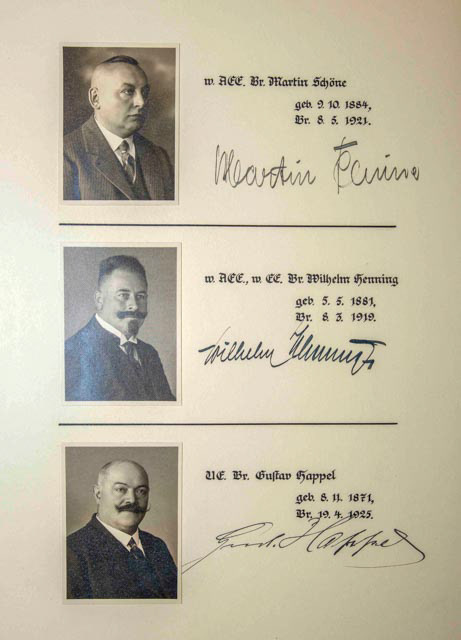 w. AEE. Br. Martin Schöne
geb. 9. 10. 1884,
Br. 8. 5. 1921.
Martin
w. AEE., w. EE. Br. Wilhelm Henning
geb. 5. 5. 1881,
Br. 8. 3. 1919.
Wilhelm Henning
UE. Br. Gustav Happel
geb. 8. 11. 1871,
Br. 19. 4. 1925.
Gust. Happel